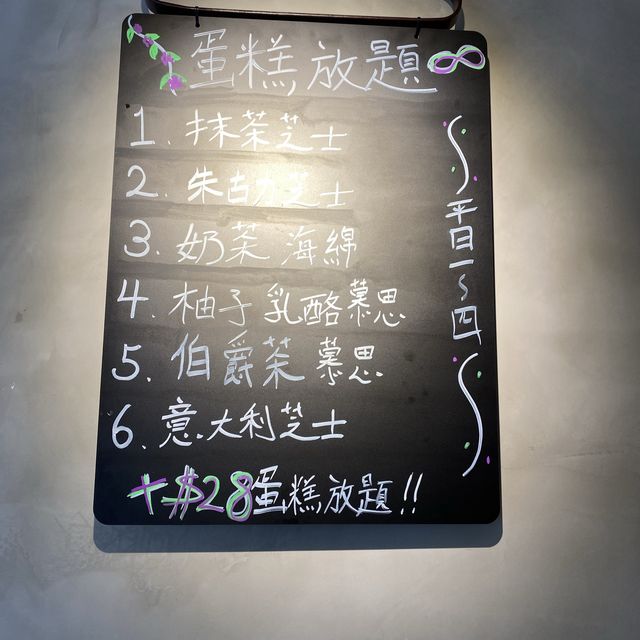 蛋糕放題 ∞
1. 抹茶芝士
2. 朱古力芝士
3. 奶茶 海綿
4. 柚子 乳酪慕思
5. 伯爵茶 慕思
6. 意大利芝士
+$28蛋糕放題!!
平日一~四